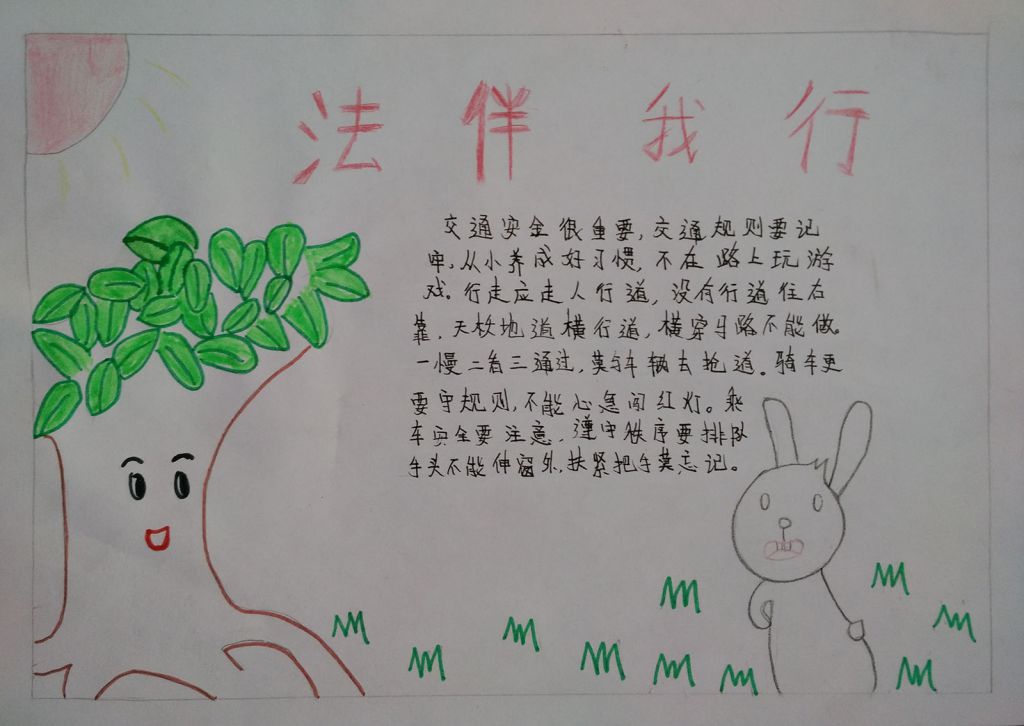 法伴我行
交通安全很重要,交通规则要记
牢,从小养成好习惯,不在路上玩游
戏。行走应走人行道,没有行道往右
靠,天桥地道横行道,横穿马路不能做。
一慢二看三通过,莫与车辆去抢道。骑车更
要守规则,不能心急闯红灯。乘
车安全要注意,遵守秩序要排队
手头不能伸窗外,扶紧把手莫忘记。